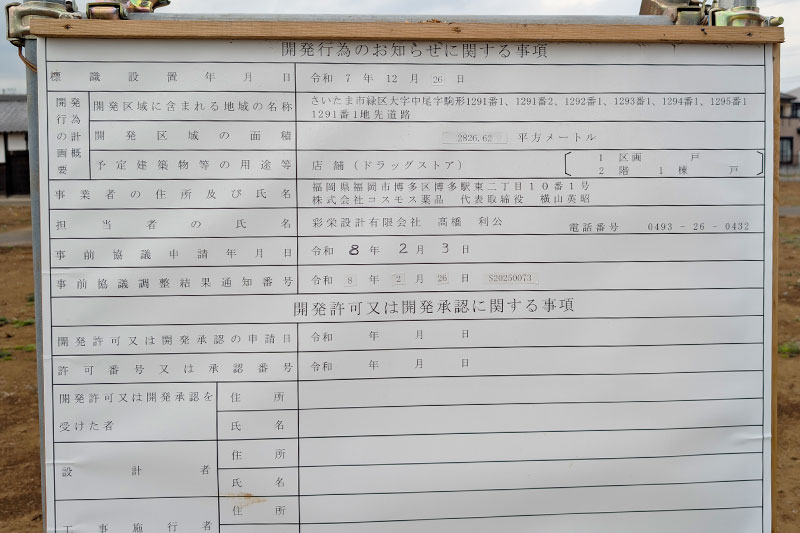 開発行為のお知らせに関する事項
標識設置年月日 令和 7 年 12 月 26 日
開発行為の計画概要
開発区域に含まれる地域の名称 さいたま市緑区大字中尾字駒形1291番1、1291番2、1292番1、1293番1、1294番1、1295番1
1291番1地先道路
開発区域の面積 2826.62 平方メートル
予定建築物等の用途等 店舗(ドラッグストア) 1 区画 戸
2 階 1 棟 戸
事業者の住所及び氏名 福岡県福岡市博多区博多駅東二丁目10番1号
株式会社コスモス薬品 代表取締役 横山英昭
担当者の氏名 彩栄設計有限会社 髙橋 利公 電話番号 0493-26-0432
事前協議申請年月日 令和 8 年 2 月 3 日
事前協議調整結果通知番号 令和 8 年 2 月 26 日 S20250073
開発許可又は開発承認に関する事項
開発許可又は開発承認の申請日 令和 年 月 日
許可番号又は承認番号 令和 年 月 日
開発許可又は開発承認を受けた者 住所
氏名
設計者 住所
氏名
工事施行者 住所